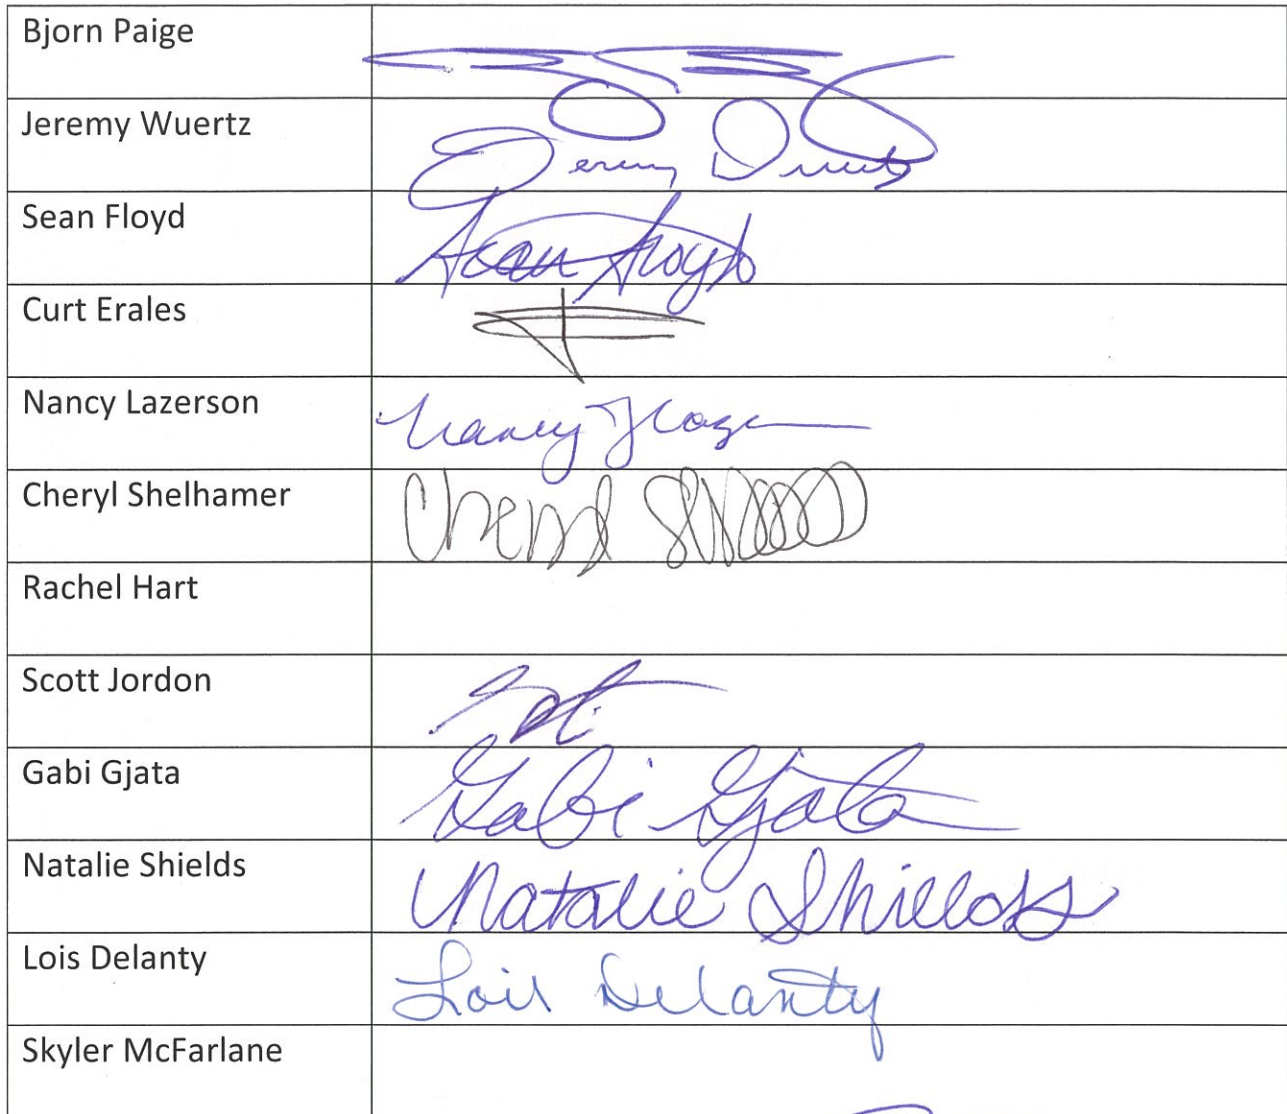 Bjorn Paige
Jeremy Wuertz
Jeremy Wuertz
Sean Floyd
Sean Floyd
Curt Erales
Nancy Lazerson
Nancy
Cheryl Shelhamer
Cheryl
Rachel Hart
Scott Jordon
Gabi Gjata
Gabi Gjata
Natalie Shields
Natalie Shields
Lois Delanty
Lois Delanty
Skyler McFarlane